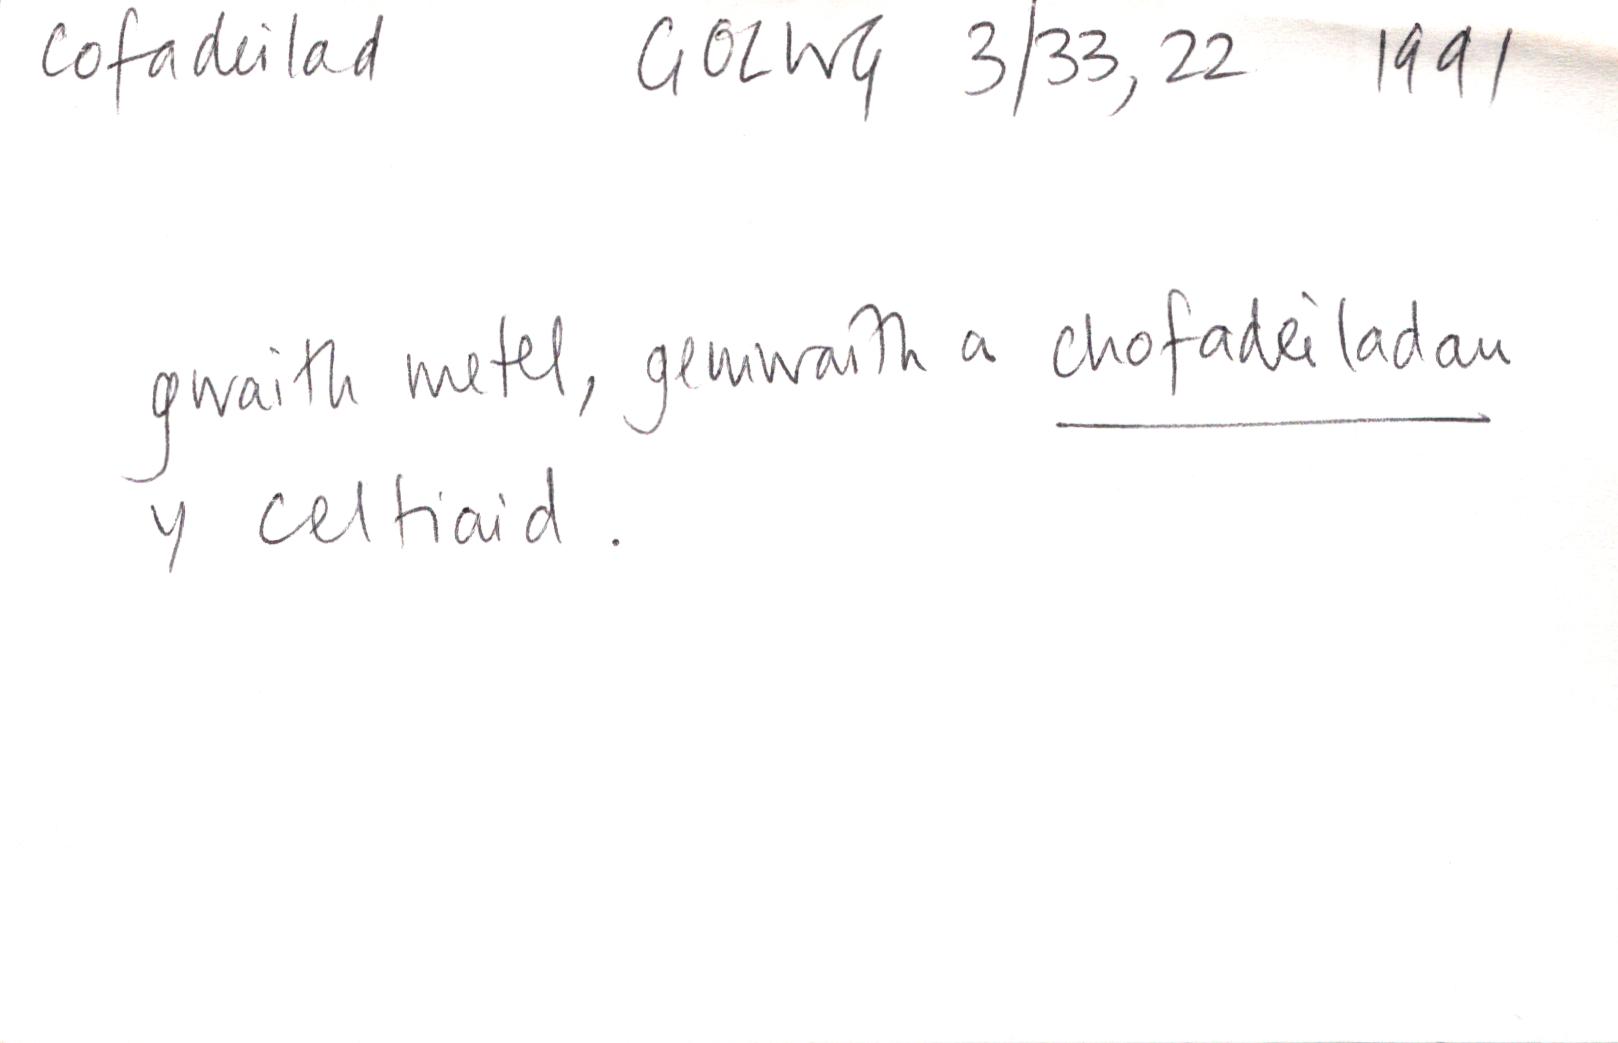 cofadeilad GOLWG 3/33, 22 1991
gwaith metel, gemwaith a chofadeiladau
y celtiaid.